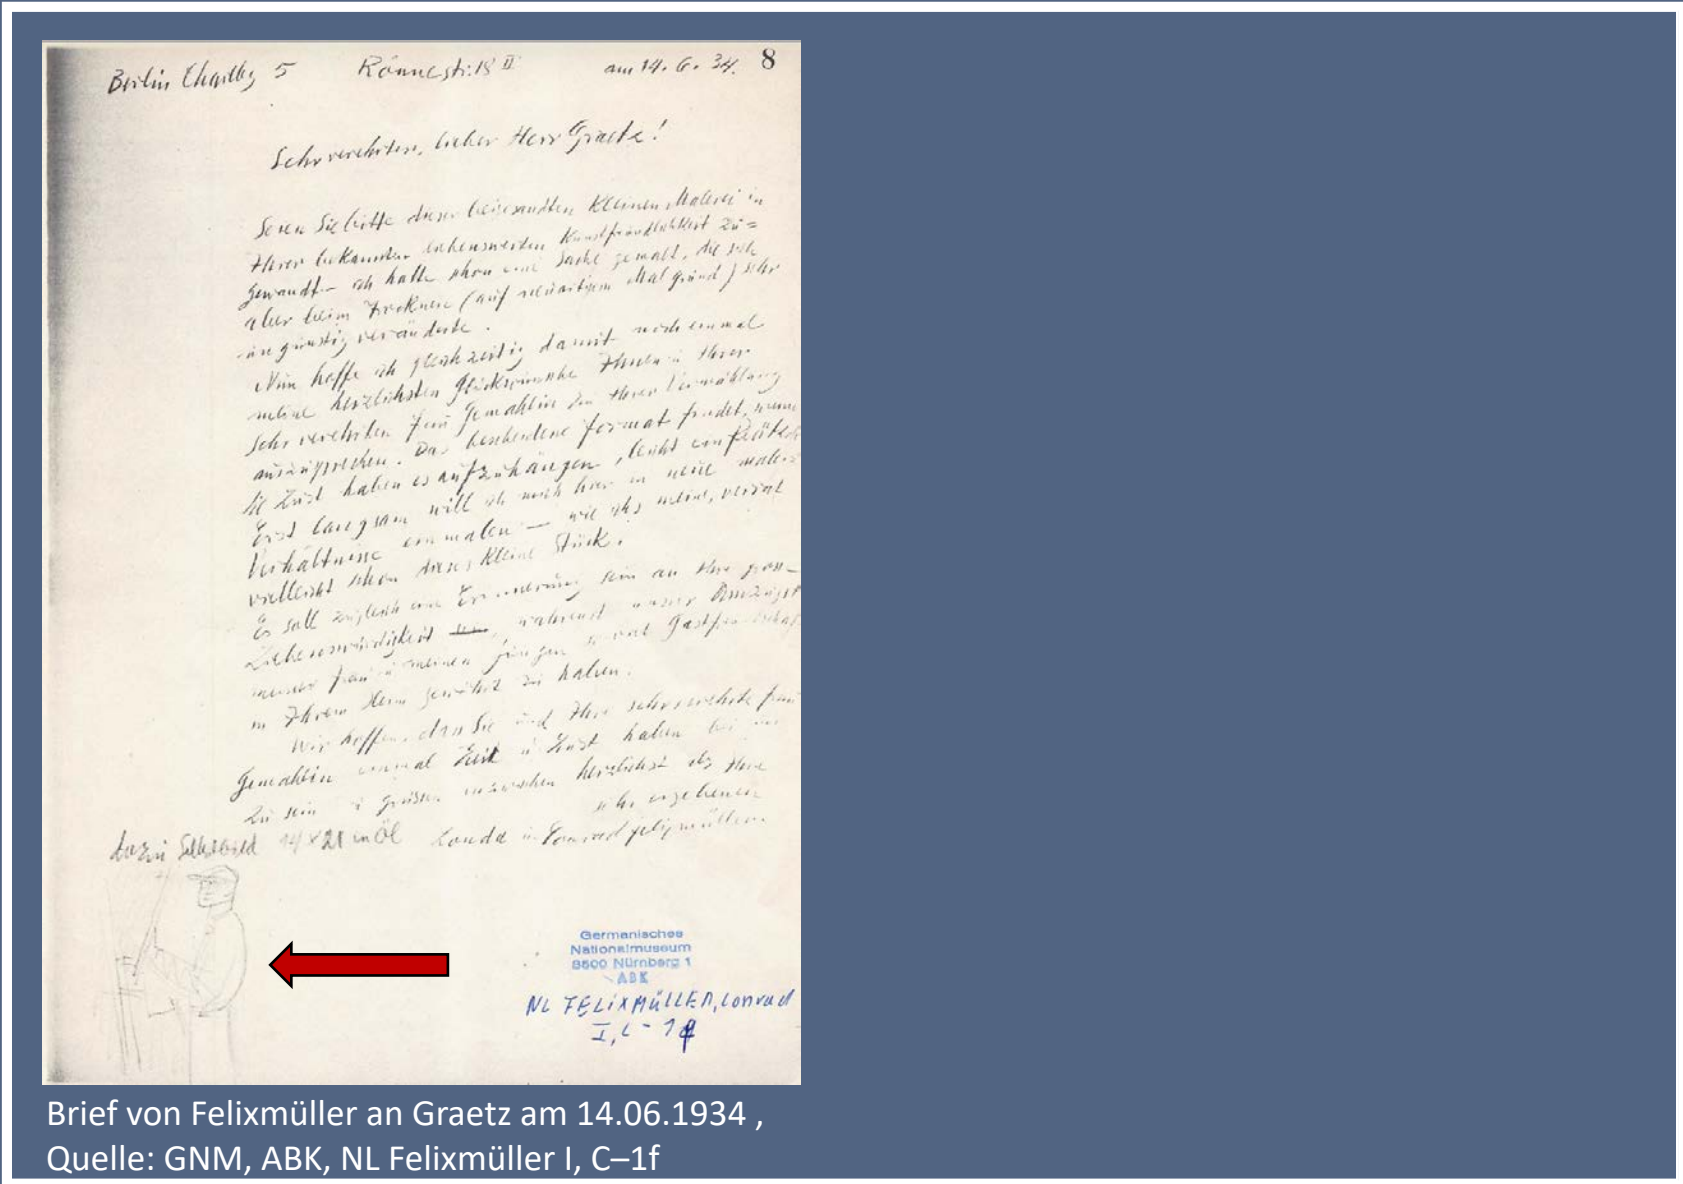 Berlin Charlbg 5 Rönnestr. 18 II am 14. 6. 34. 8
Sehr verehrter, lieber Herr Graetz!
Seien Sie bitte dieser beigesandten kleinen Malerei in
Ihrer bekannten liebenswerten Kunstfreundlichkeit zu=
gewandt – ich hatte schon eine Sache gemalt, die sich
aber beim Trocknen (auf neuartigem Malgrund) sehr
ungünstig veränderte.
Nun hoffe ich gleichzeitig damit noch einmal
meine herzlichsten Glückwünsche Ihnen u Ihrer
sehr verehrten Frau Gemahlin zu Ihrer Vermählung
auszusprechen. Das bescheidene Format findet, wenn
Sie Lust haben es aufzuhängen, leicht ein
Erst langsam will ich mich hier in neue
Verhältnisse einmalen — wie ichs meine, verrät
vielleicht schon dieses kleine Stück.
Es soll zugleich eine Erinnerung sein an Ihre
Liebenswürdigkeit, während unser
meiner Frau u meinen Jungen soviel
in Ihrem Heim gewährt zu haben.
Wir hoffen, dass Sie und Ihre sehr verehrte Frau
Gemahlin einmal Zeit u Lust haben bei uns
zu sein u grüssen inzwischen herzlichst als Ihre
sehr ergebenen
dazu Selbstbild 14 x 21 in Öl Londa u Conrad Felixmüller.
Germanisches
Nationalmuseum
8500 Nürnberg 1
ABK
NL FELIXMÜLLER, Conrad
I, C - 1f
Brief von Felixmüller an Graetz am 14.06.1934 ,
Quelle: GNM, ABK, NL Felixmüller I, C–1f